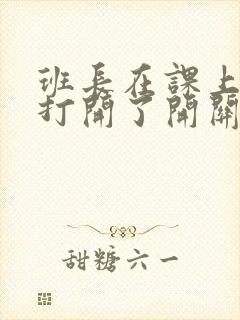 班長在課上
打開了開關
甜糖六一